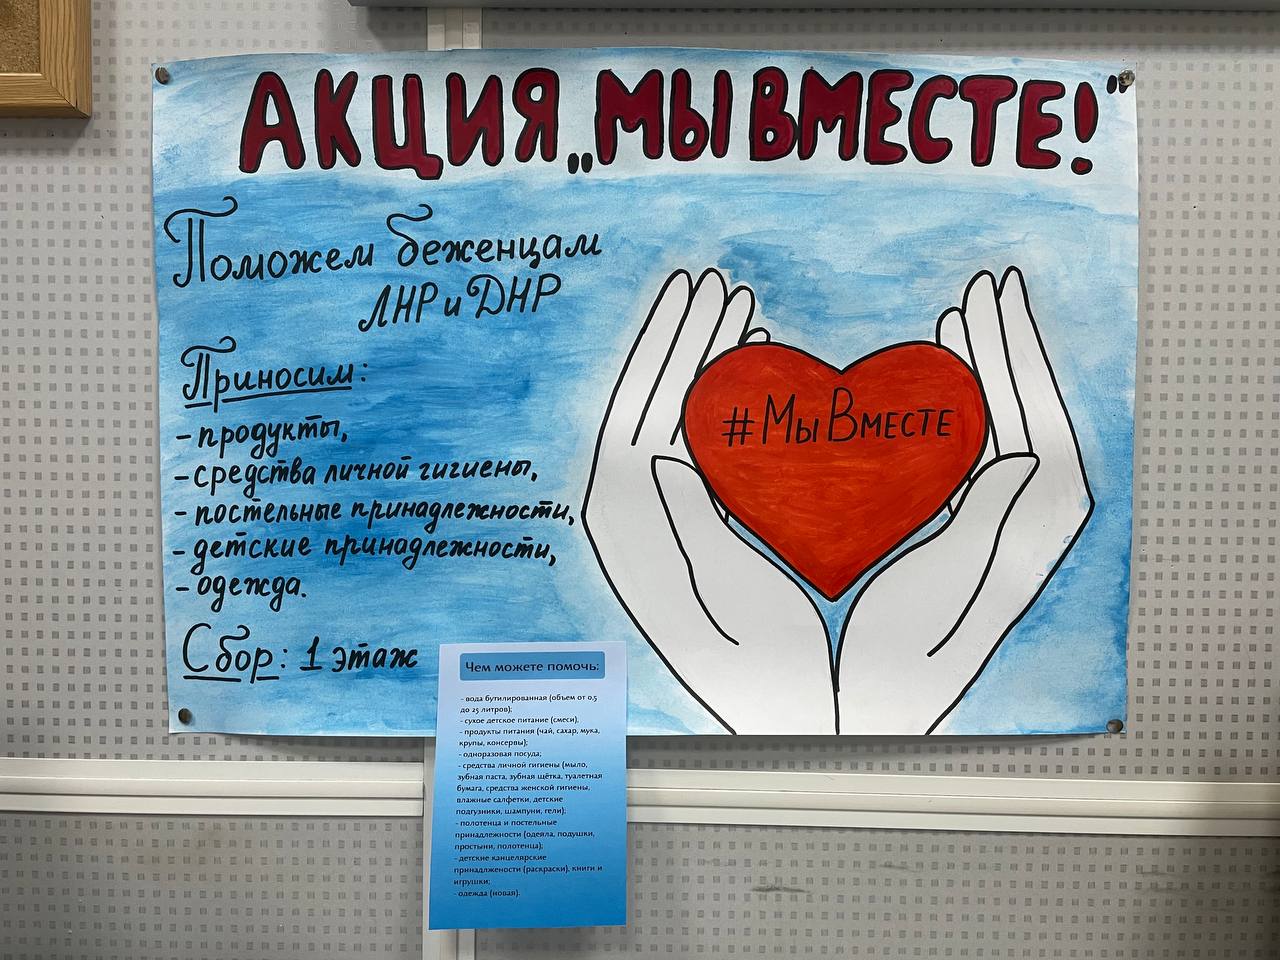 АКЦИЯ „МЫ ВМЕСТЕ!"
Поможем беженцам
ЛНР и ДНР
Приносим:
- продукты,
- средства личной гигиены,
- постельные принадлежности,
- детские принадлежности,
- одежда.
Сбор: 1 этаж
#МыВместе
Чем можете помочь:
- вода бутилированная (объем от 0,5
до 25 литров);
- сухое детское питание (смеси),
- продукты питания (чай, сахар, мука,
крупы, консервы);
- одноразовая посуда;
- средства личной гигиены (мыло,
зубная паста, зубная щётка, туалетная
бумага, средства женской гигиены,
влажные салфетки, детские
подгузники, шампуни, гели);
- полотенца и постельные
принадлежности (одеяла, подушки,
простыни, полотенца);
- детские канцелярские
принадлжености (раскраски), книги и
игрушки;
- одежда (новая).